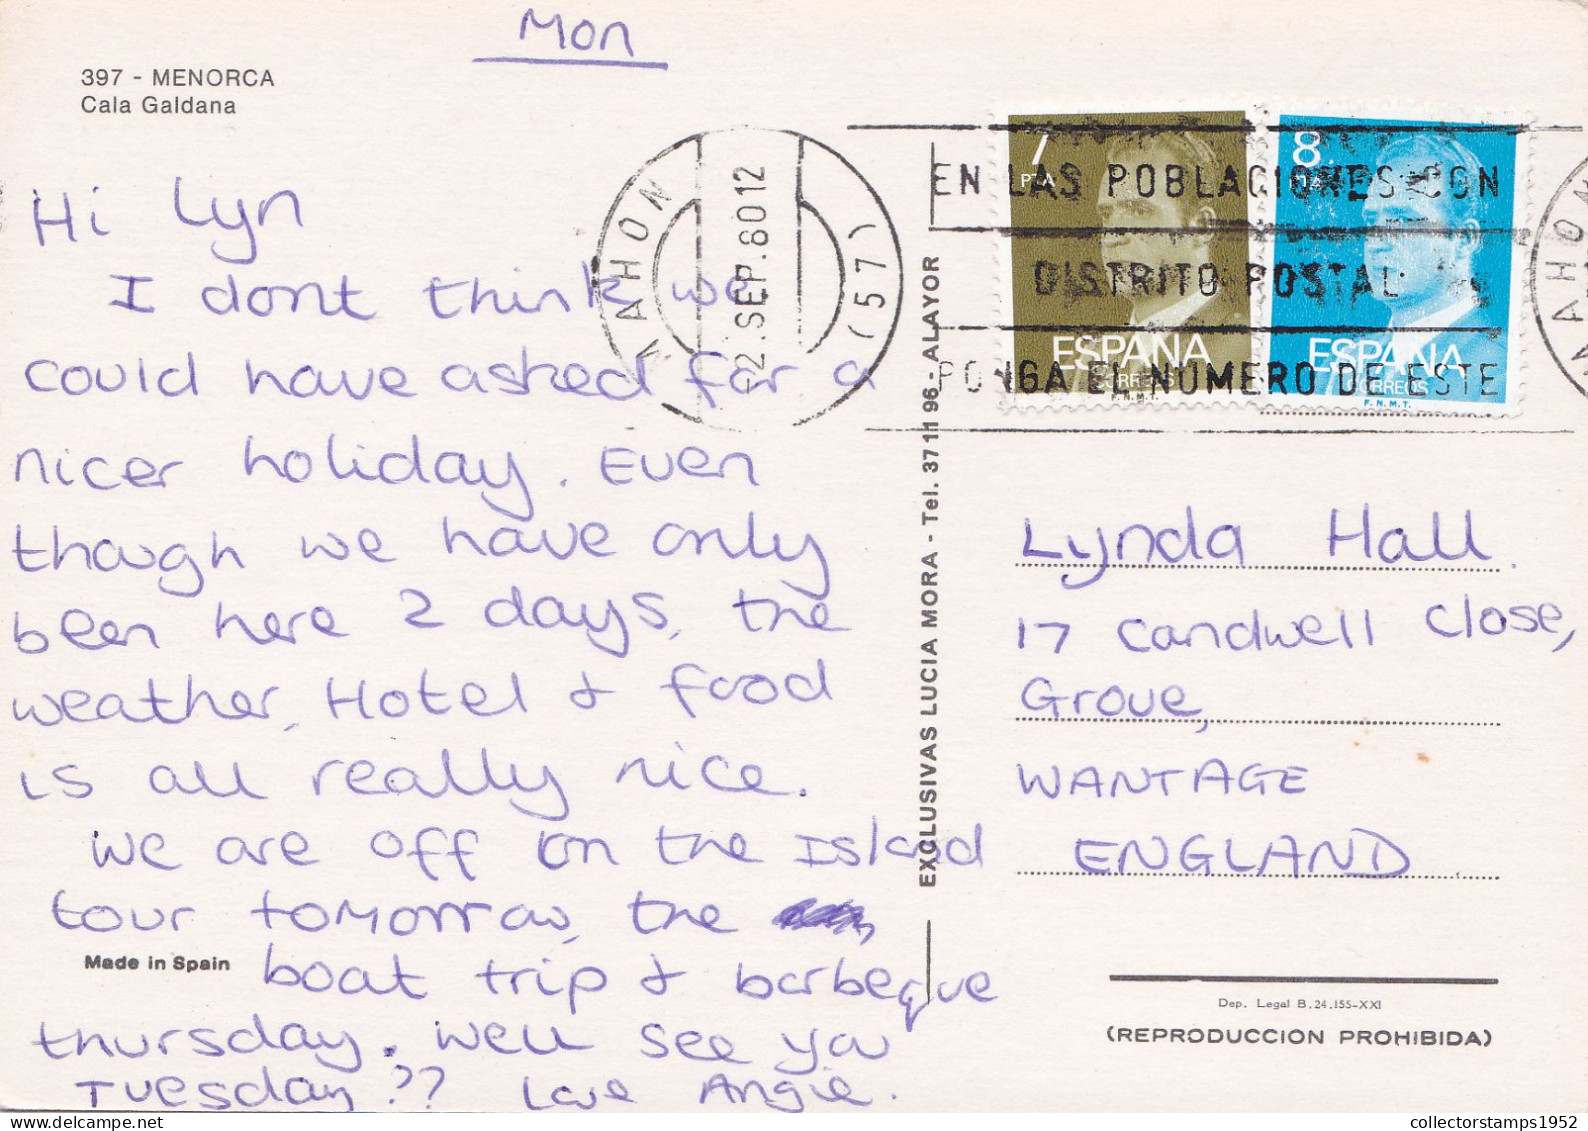 Mon
397 - MENORCA
Cala Galdana
Hi Lyn
I dont think we
could have asked for a
nicer holiday. Even
though we have only
been here 2 days, the
weather, Hotel & food
is all really nice.
We are off on the Island
tour tomorrow, the
boat trip & barbeque
thursday. Well see you
Tuesday?? Love Angie.
Made in Spain
MAHON
2.SEP.8012
(57)
EN LAS POBLACIONES CON
DISTRITO POSTAL
PONGA EL NUMERO DE ESTE
7
PTA
ESPAÑA
CORREOS
F.N.M.T.
8
PTA
ESPAÑA
CORREOS
F.N.M.T.
AHON
EXCLUSIVAS LUCIA MORA - Tel. 37 11 96 - ALAYOR
Lynda Hall
17 Candwell Close,
Grove,
WANTAGE
ENGLAND
Dep. Legal B.24.155-XXI
(REPRODUCCION PROHIBIDA)
collectorstamps1952